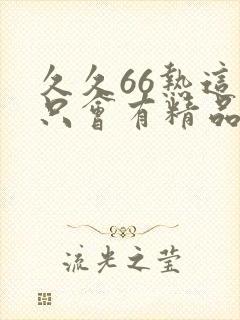 久久66热這
只會有精品
流光之莹